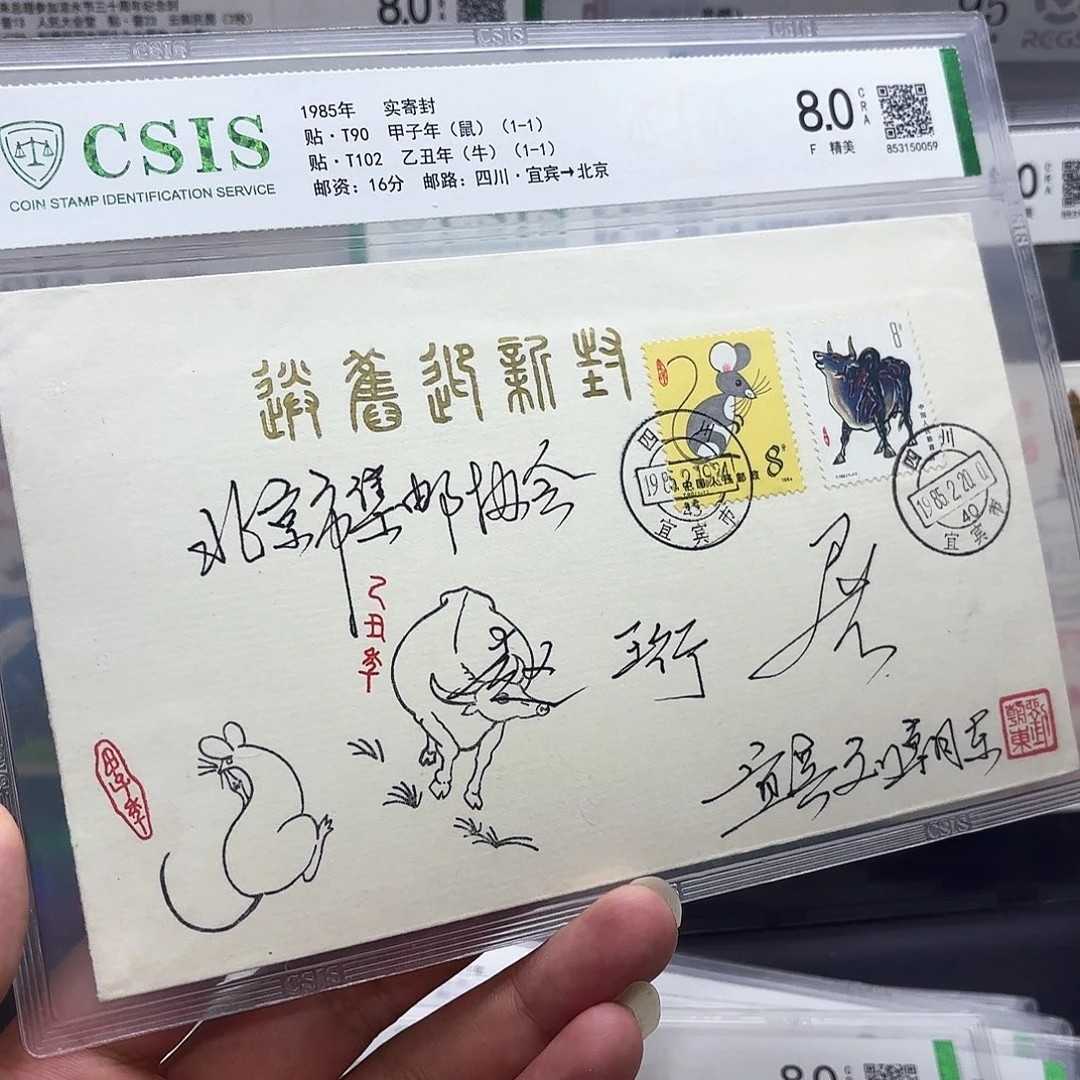 8.0
95
CSIS
COIN STAMP IDENTIFICATION SERVICE
1985年 实寄封
贴·T90 甲子年（鼠）（1-1）
贴·T102 乙丑年（牛）（1-1）
邮资：16分 邮路：四川·宜宾→北京
8.0
CRA
F 精美
853150059
送舊迎新封
8
8
四川
1985.2.19
宜宾市
四川
1985.2.20
40
宜宾市
北京市集邮协会
乙丑季
王行
宜宾刘朝东
CSIS
CSIS
CSIS
8.0